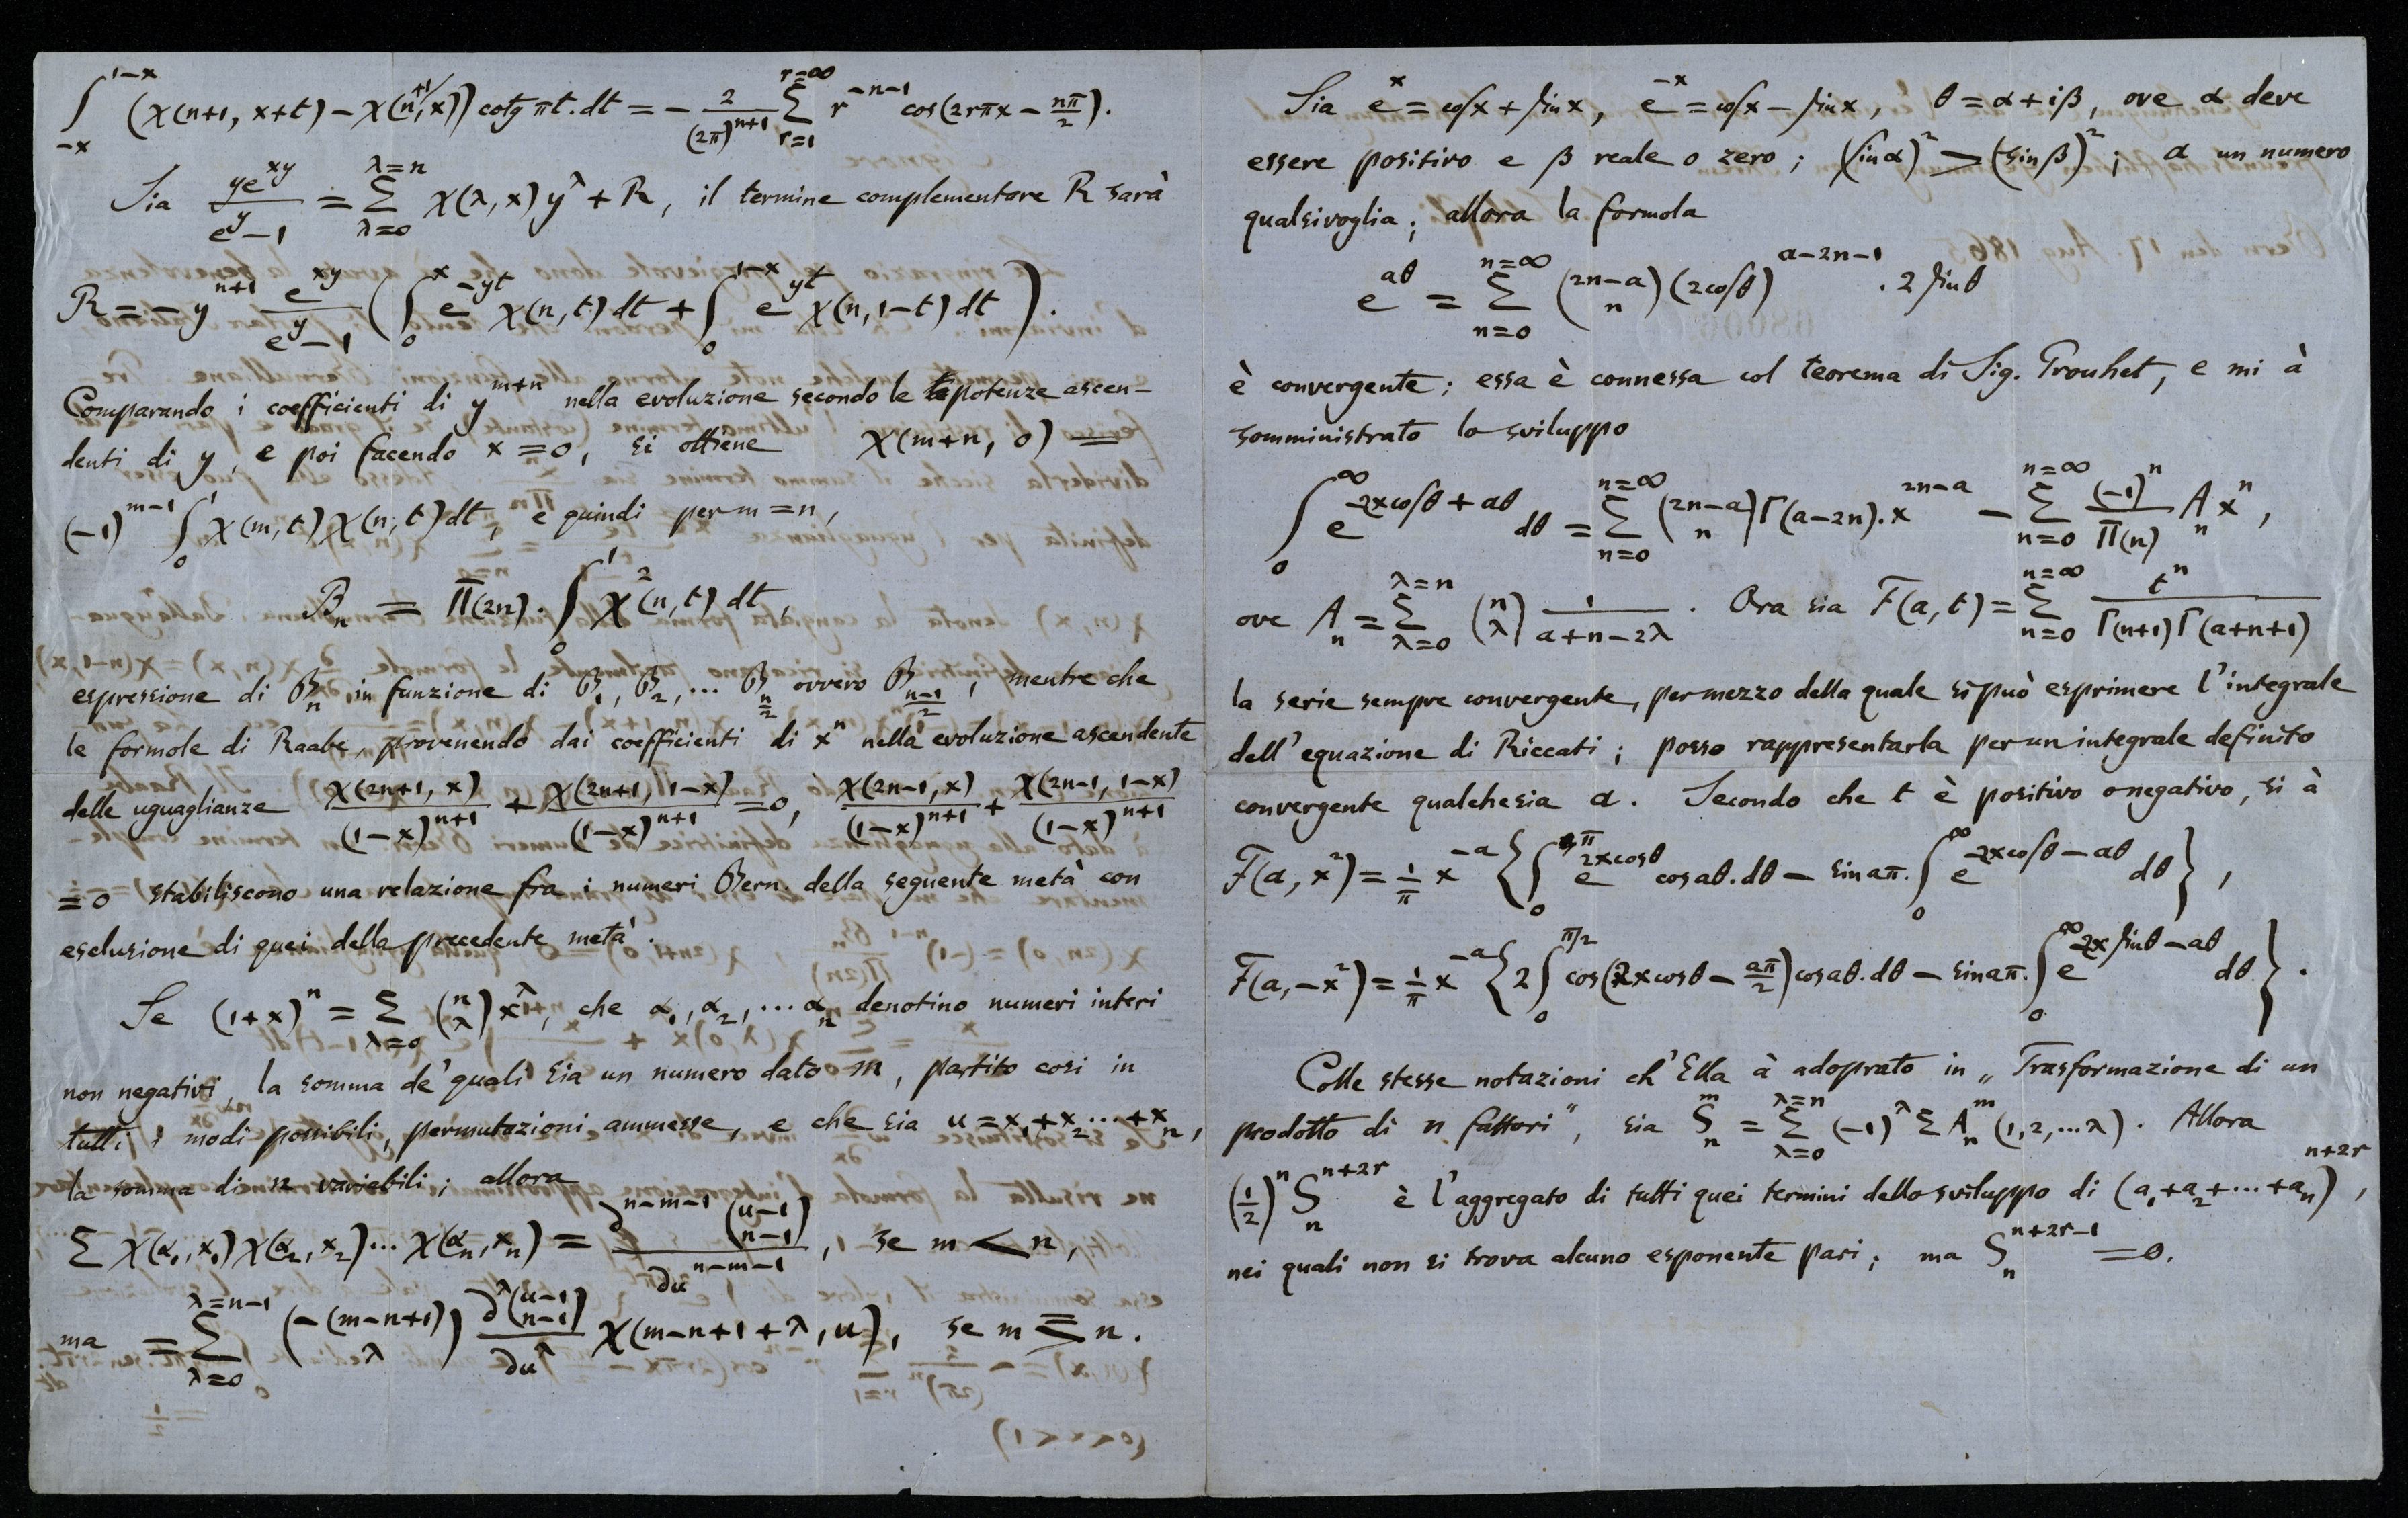 ∫_{-x}^{1-x} (χ(n+1, x+t) − χ(n+1, x)) cotg πt. dt = − \frac{2}{(2π)^{n+1}} Σ_{r=1}^{r=∞} r^{-n-1} cos(2rπx − \frac{nπ}{2}).
Sia \frac{ye^{xy}}{e^y − 1} = Σ_{λ=0}^{λ=n} χ(λ, x) y^λ + R, il termine complementare R sarà
R = − y^{n+1} \frac{e^{xy}}{e^y − 1} ( ∫_0^x e^{-yt} χ(n, t) dt + ∫_0^{1-x} e^{yt} χ(n, 1−t) dt ).
Comparando i coefficienti di y^{m+n} nella evoluzione secondo le potenze ascen-
denti di y, e poi facendo x = 0, si ottiene χ(m+n, 0) =
(−1)^{m-1} ∫_0^1 χ(m, t) χ(n, t) dt, e quindi per m = n,
B_n = Π(2n). ∫_0^1 χ^2(n, t) dt,
espressione di B_n in funzione di B_1, B_2, ... B_{\frac{n}{2}} ovvero B_{\frac{n-1}{2}}, mentre che
le formole di Raabe, provenendo dai coefficienti di x^n nella evoluzione ascendente
delle uguaglianze \frac{χ(2n+1, x)}{(1−x)^{n+1}} + \frac{χ(2n+1, 1−x)}{(1−x)^{n+1}} = 0, \frac{χ(2n−1, x)}{(1−x)^{n+1}} + \frac{χ(2n−1, 1−x)}{(1−x)^{n+1}}
= 0 stabiliscono una relazione fra i numeri Bern. della seguente metà con
esclusione di quei della precedente metà.
Se (1+x)^n = Σ_{λ=0} \binom{n}{λ} x^λ, che α_1, α_2, ... α_n denotino numeri interi
non negativi, la somma de' quali sia un numero dato m, partito cosi in
tutti i modi possibili, permutazioni ammesse, e che sia u = x_1 + x_2 ... + x_n,
la somma di n variabili; allora
Σ χ(α_1, x_1) χ(α_2, x_2) ... χ(α_n, x_n) = \frac{∂^{n-m-1} \binom{u-1}{n-1}}{∂u^{n-m-1}}, se m < n,
ma = Σ_{λ=0}^{λ=n-1} \binom{-(m-n+1)}{λ} \frac{∂^λ \binom{u-1}{n-1}}{∂u^λ} χ(m−n+1+λ, u), se m ≧ n.
Sia e^x = coſx + ſinx, e^{-x} = coſx − ſinx, θ = α + iβ, ove α deve
essere positivo e β reale o zero; (ſinα)^2 > (sinβ)^2; a un numero
qualsivoglia; allora la formola
e^{aθ} = Σ_{n=0}^{n=∞} \binom{2n-a}{n} (2coſθ)^{a-2n-1} . 2ſinθ
è convergente; essa è connessa col teorema di Sig. Prouhet, e mi à
somministrato lo sviluppo
∫_0^∞ e^{-2xcoſθ + aθ} dθ = Σ_{n=0}^{n=∞} \binom{2n-a}{n} Γ(a−2n). x^{2n-a} − Σ_{n=0}^{n=∞} \frac{(−1)^n}{Π(n)} A_n x^n,
ove A_n = Σ_{λ=0}^{λ=n} \binom{n}{λ} \frac{1}{a+n−2λ}. Ora sia F(a, t) = Σ_{n=0}^{n=∞} \frac{t^n}{Γ(n+1)Γ(a+n+1)}
la serie sempre convergente, per mezzo della quale si può esprimere l'integrale
dell'equazione di Riccati; posso rappresentarla per un integrale definito
convergente qualchesia a. Secondo che t è positivo o negativo, si à
F(a, x^2) = \frac{1}{π} x^{-a} { ∫_0^π e^{2xcosθ} cosaθ. dθ − sinaπ. ∫_0^∞ e^{-2xcoſθ − aθ} dθ },
F(a, −x^2) = \frac{1}{π} x^{-a} { 2 ∫_0^{π/2} cos(2xcosθ − \frac{aπ}{2}) cosaθ. dθ − sinaπ. ∫_0^∞ e^{-2xſinθ − aθ} dθ }.
Colle stesse notazioni ch'Ella à adoprato in „Trasformazione di un
prodotto di n fattori", sia S_n^m = Σ_{λ=0}^{λ=n} (−1)^λ Σ A_n^m (1, 2, ... λ). Allora
(\frac{1}{2})^n S_n^{n+2r} è l'aggregato di tutti quei termini dello sviluppo di (a_1 + a_2 + ... + a_n)^{n+2r},
nei quali non si trova alcuno esponente pari; ma S_n^{n+2r-1} = 0.